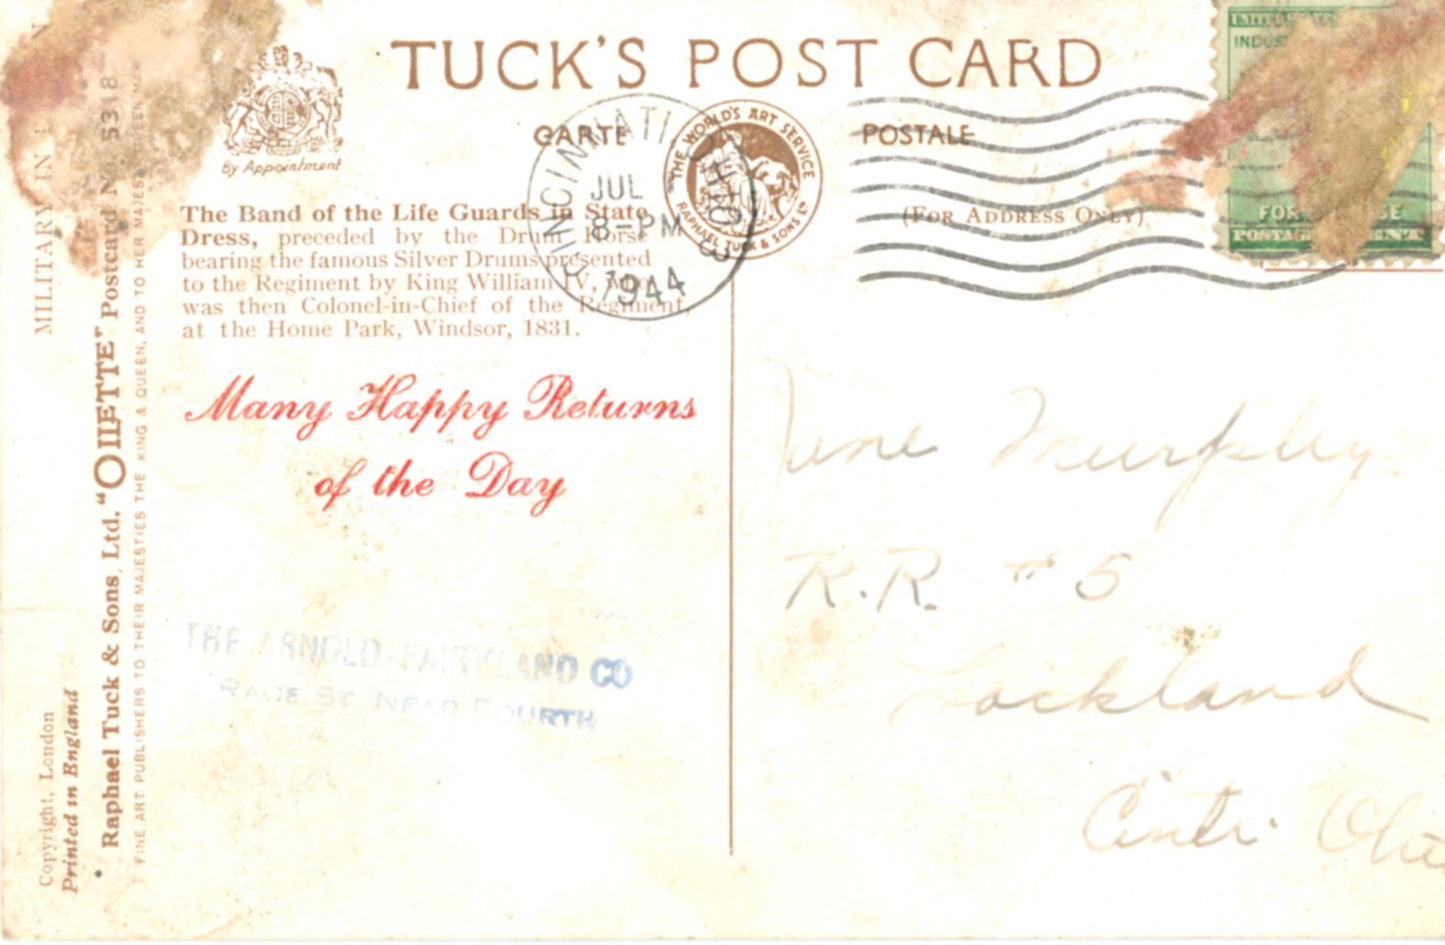 TUCK'S POST CARD
by Appointment
CARTE POSTALE
THE WORLD'S ART SERVICE
RAPHAEL TUCK & SONS LTD
(FOR ADDRESS ONLY)
CINCINNATI OHIO
JUL
8-PM
1944
3
UNITED STATES
INDUS
FOR DEFENSE
POSTAGE CENT
The Band of the Life Guards in State
Dress, preceded by the Drum Horse
bearing the famous Silver Drums presented
to the Regiment by King William IV, who
was then Colonel-in-Chief of the Regiment,
at the Home Park, Windsor, 1831.
Many Happy Returns
of the Day
THE ARNOLD-FAIRYLAND CO
RACE ST NEAR FOURTH
Jane Murphy
R.R. # 5
Lockland
Cinti. Ohio
MILITARY IN
Copyright, London
Printed in England
Raphael Tuck & Sons, Ltd. "OILETTE" Postcard No. 5318
FINE ART PUBLISHERS TO THEIR MAJESTIES THE KING & QUEEN, AND TO HER MAJESTY QUEEN MARY